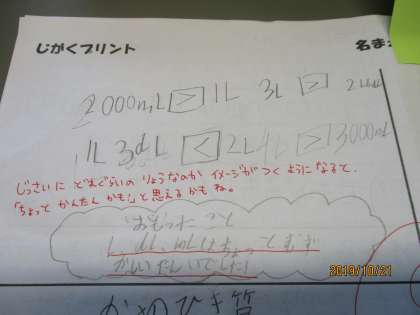 じがくプリント
名ま
2000mL > 1L 3L > 2
1L 3dL < 2L 4L > 3000mL
じっさいに どれぐらいの りょうなのか イメージがつく ようになると、
「ちょっと かんたん かも!」と 思えるかもね。
おもったこと
L、dL、mLは
かんたんでした!
2019/10/21
かわのひき算